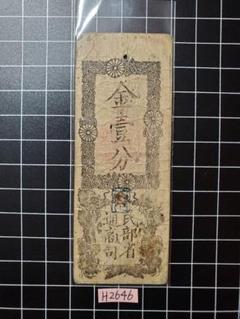 金壹分
民部省
通商司
H2646